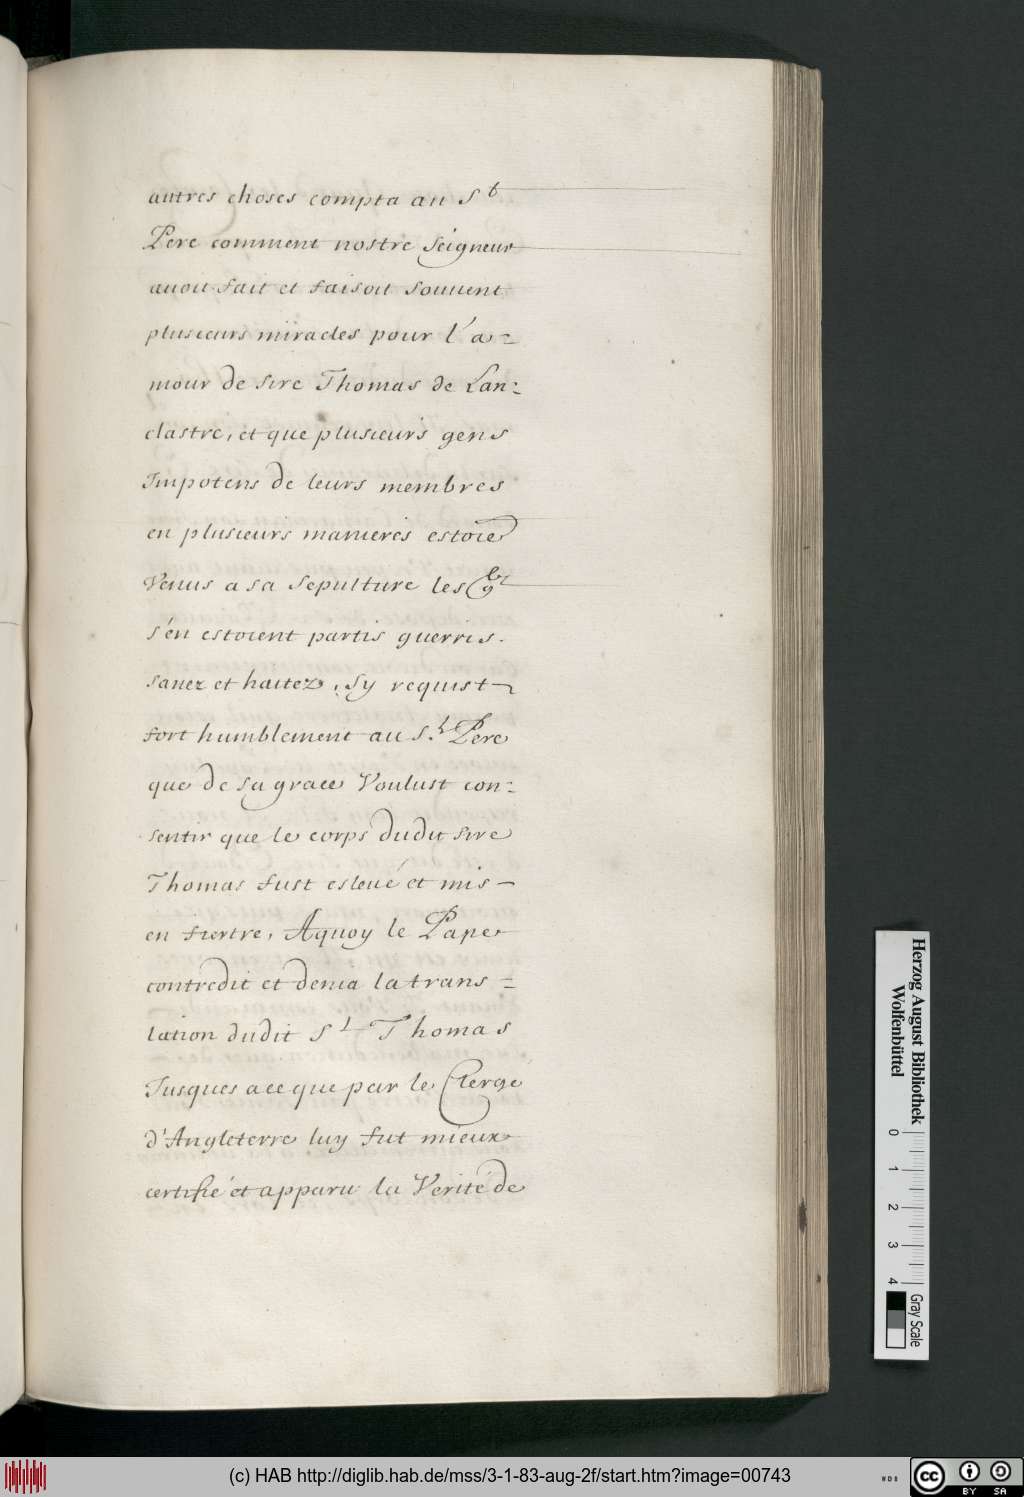 autres choses compta au St
Pere comment nostre Seigneur
auoit fait et faisoit souuent
plusieurs miracles pour l'a-
mour de sire Thomas de Lan-
clastre, et que plusieurs gens
Impotens de leurs membres
en plusieurs manieres estoiẽ
Venus a sa sepulture les
s'en estoient partis guerris.
sanez et haitez, Sy requist
fort humblement au St. Pere
que de sa grace Voulust con-
sentir que le corps dudit sire
Thomas fust esleué et mis
en fiertre, Aquoy le Pape
contredit et denia la trans-
lation dudit St Thomas
Jusques a ce que par le Clergé
d'Angleterre luy fut mieux
certifié et apparu la Verité de
Herzog August Bibliothek
Wolfenbüttel
0 1 2 3 4
Gray Scale
(c) HAB http://diglib.hab.de/mss/3-1-83-aug-2f/start.htm?image=00743
cc BY SA